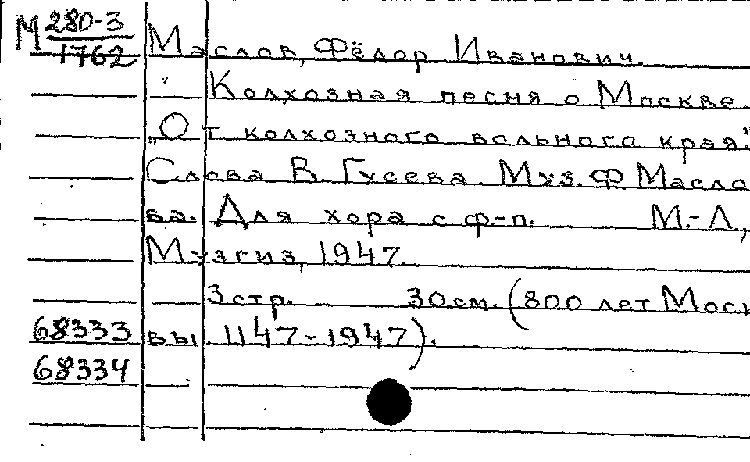 М 280-3
1762
Маслов, Фёдор Иванович.
Колхозная песня о Москве.
„От колхозного вольного края."
Слова В. Гусева. Муз. Ф. Масло
ва. Для хора с ф-п. М.-Л.,
Музгиз, 1947.
3 стр. 30 см. (800 лет Моск
68333 вы 1147-1947).
68334